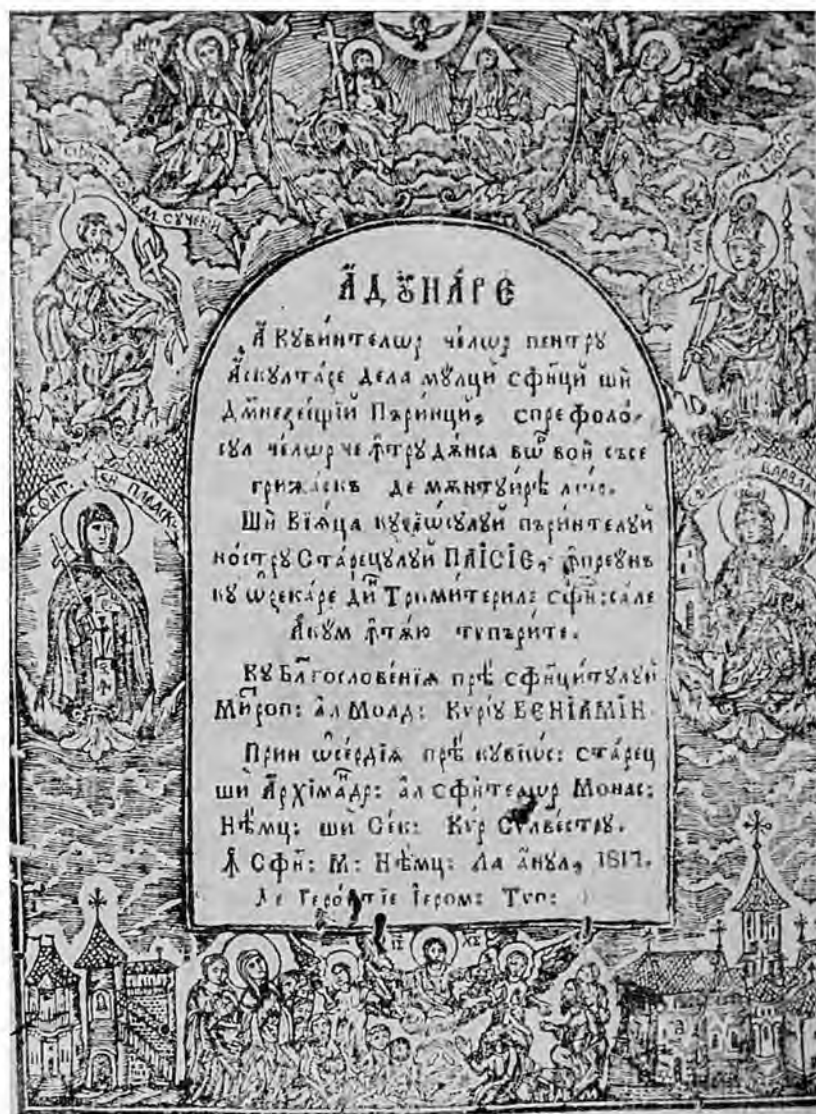 А҆ДꙊНА́РЕ
А҆ КꙋВИ́нтелѡр че́лѡр пентрꙋ
А҆скꙋлта́ре дела мꙋ́лци сфи́нци ши
Дꙋмнезеѥ́щїй Пъри́нци, спре фоло-
сул че́лѡр че ꙟ҆трꙋ дѫ́нса вѡ҆ⷬ вой съсе
грижѧ́скъ де мѫнтꙋи́рѣ
Шѝ Вїѧ́ца кꙋвїѡ́сꙋлꙋй пъри́нтелꙋй
но́стрꙋ Ста́рецꙋлꙋй ПАЇ́СЇЕ, ꙟ҆преꙋнъ
кꙋ ѡ҆рекаре ди́ⷩ Трими́терилє сфи́н: са́ле
А҆кꙋм ꙟ҆тѫ́ю тѵпъри́те.
Кꙋ Бл҃гослове́нїѧ прѣ́ сфинци́тꙋлꙋй
Митроп: а҆л Молд: Ку́рїꙋ ВЕНЇАМІ́Н
Прин ѡ҆се́рдїѧ прѣ́ кꙋвїѡс: ста́рец
шѝ А҆рхїма́ндр: а҆л сфи́нтелѡр Монас:
Нѣ́мц: шѝ Сек: Ку́р Сѵлве́стрꙋ.
Ꙟ҆ Сфи́н: М: Нѣ́мц: Ла а҆́нꙋл, 1817.
Де Геро́нтїе І҆еро́м: Тѵп:
ІС ХС